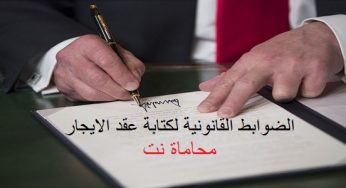 الضوابط القانونية لكتابة عقد الايجار
محاماة نت